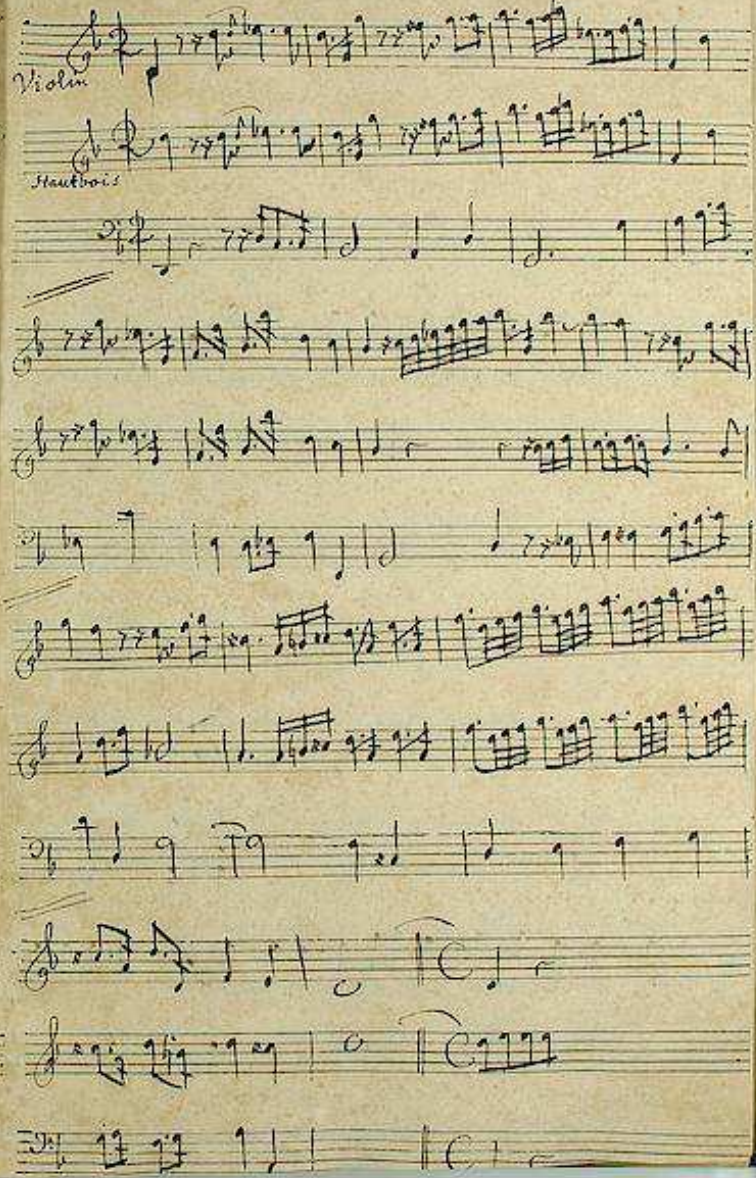 Violin
Hautbois